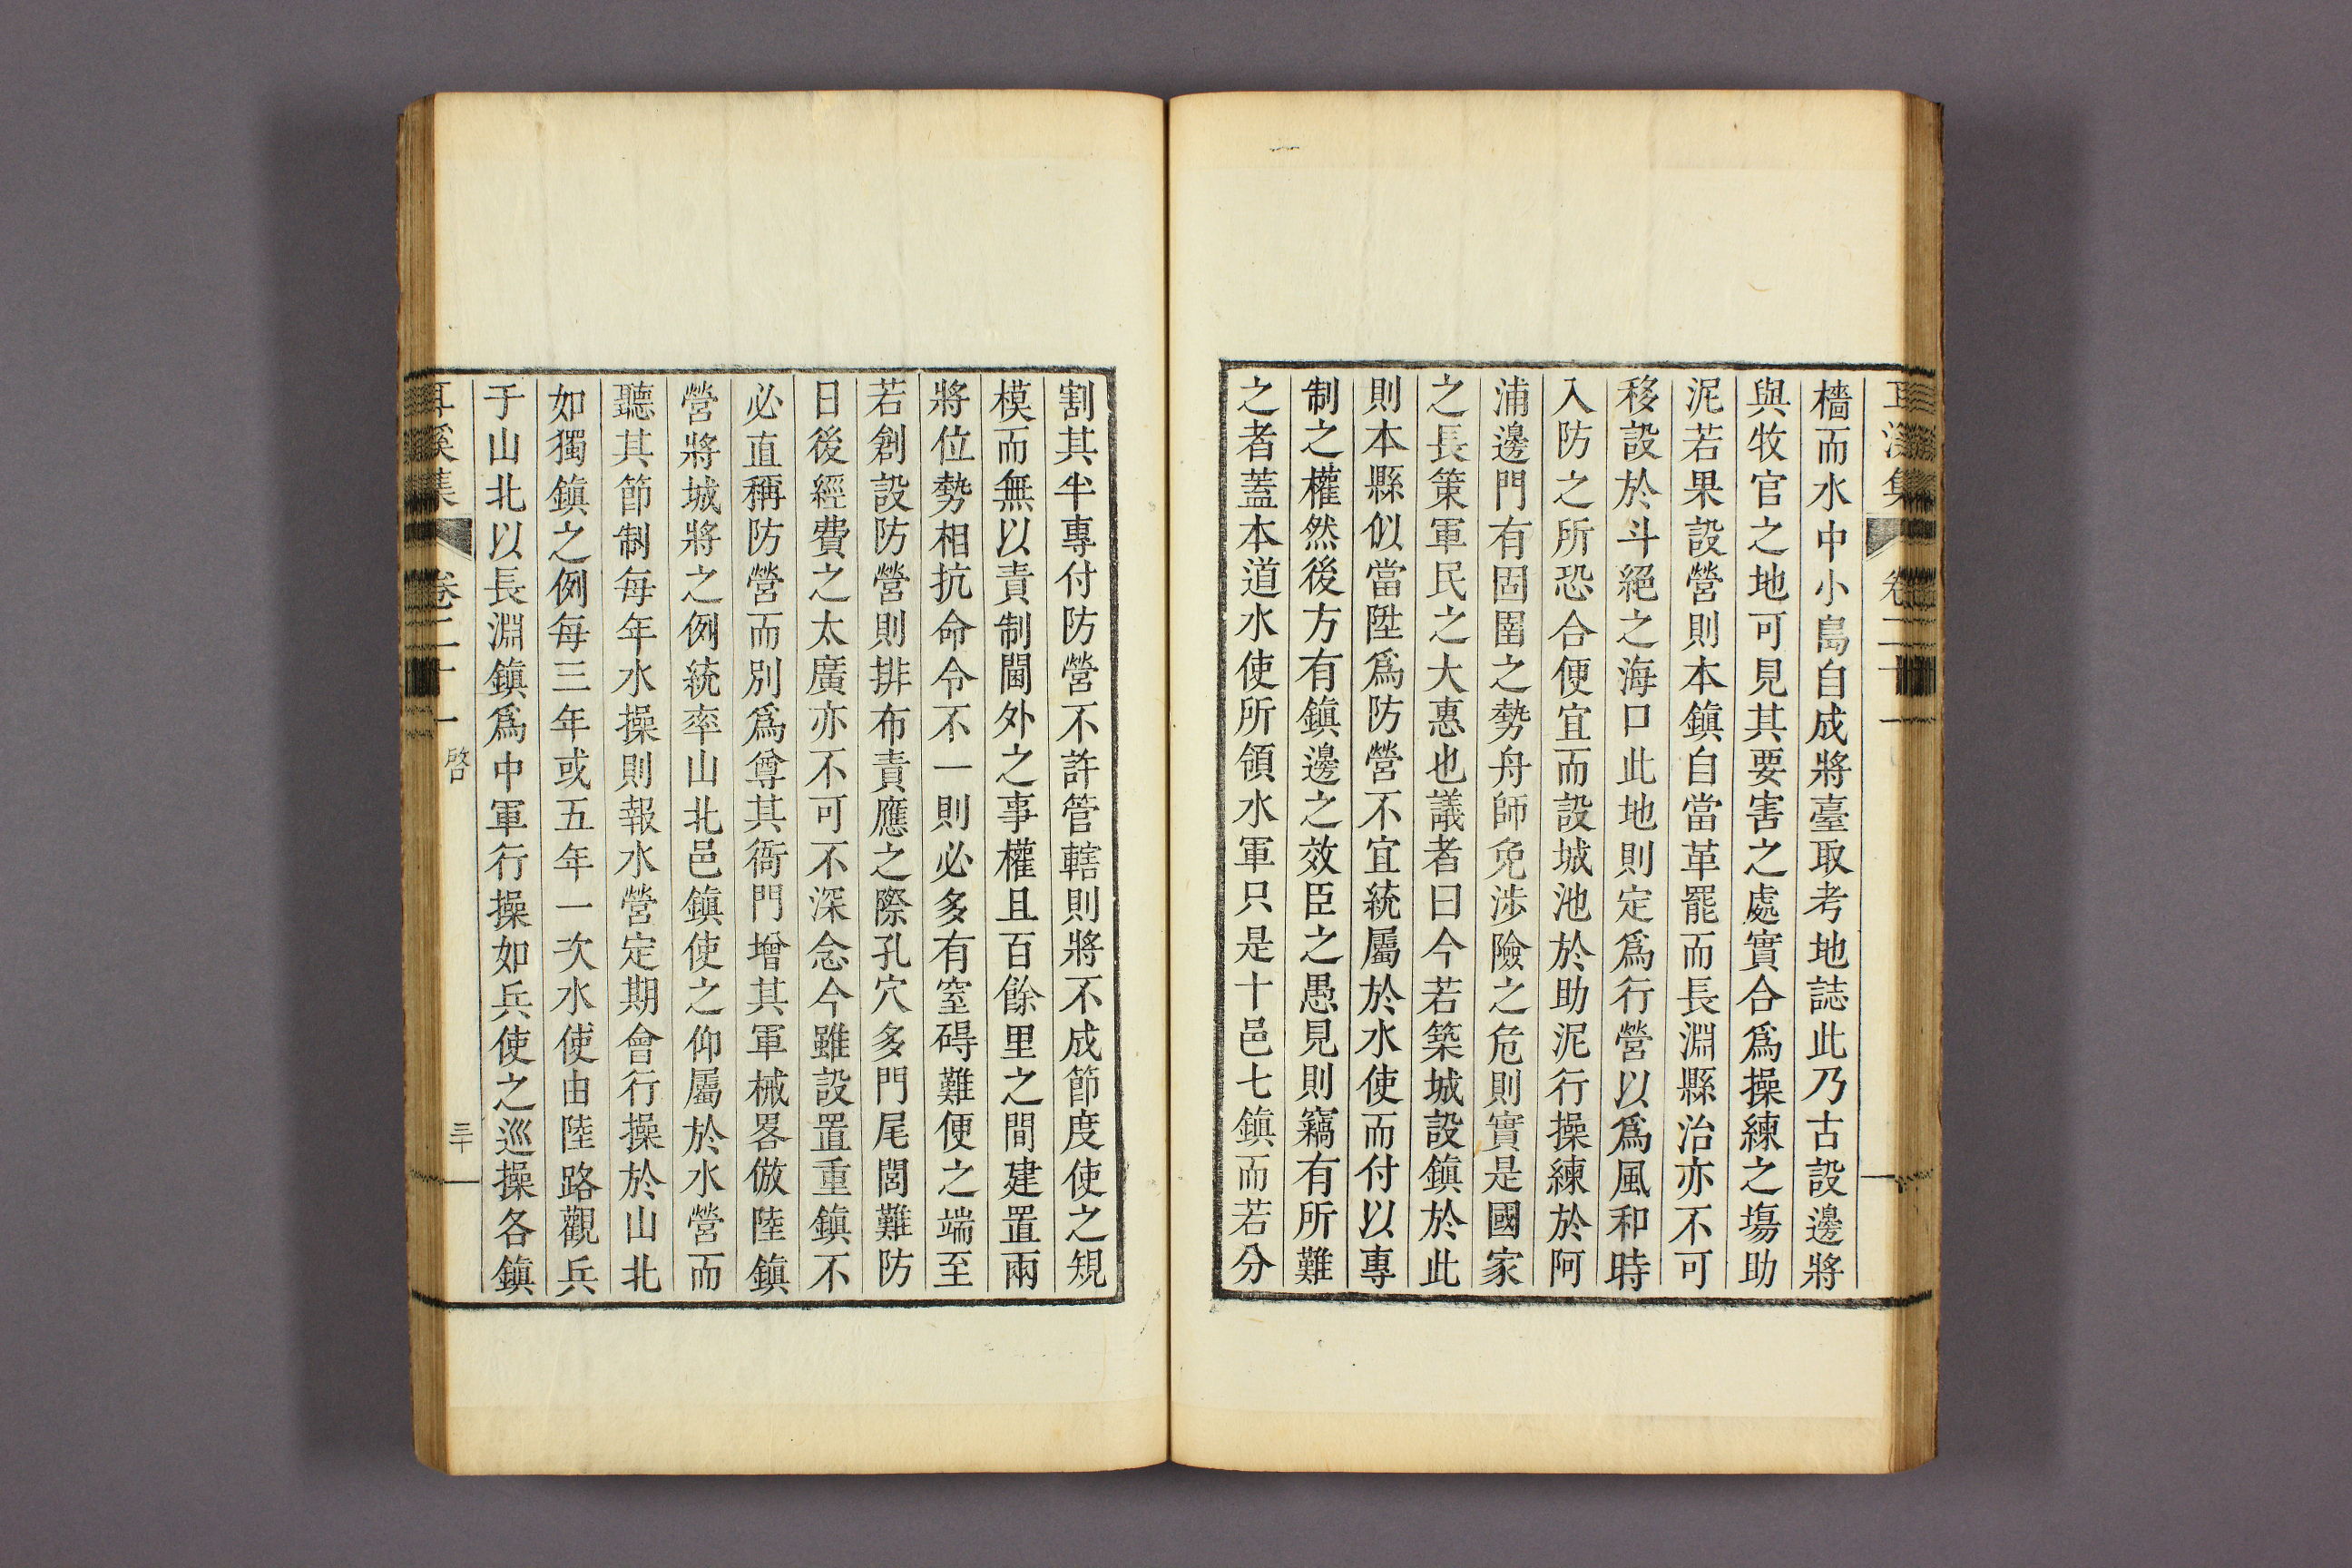 耳溪集 卷二十一
檣而水中小島自成將臺取考地誌此乃古設邊將
與牧官之地可見其要害之處實合爲操練之場助
泥若果設營則本鎭自當革罷而長淵縣治亦不可
移設於斗絕之海口此地則定爲行營以爲風和時
入防之所恐合便宜而設城池於助泥行操練於阿
浦邊門有固圉之勢舟師免涉險之危則實是國家
之長策軍民之大惠也議者曰今若築城設鎭於此
則本縣似當陞爲防營不宜統屬於水使而付以專
制之權然後方有鎭邊之效臣之愚見則竊有所難
之者蓋本道水使所領水軍只是十邑七鎭而若分
割其半專付防營不許管轄則將不成節度使之規
模而無以責制閫外之事權且百餘里之間建置兩
將位勢相抗命令不一則必多有窒碍難便之端至
若創設防營則排布責應之際孔穴多門尾閭難防
日後經費之太廣亦不可不深念今雖設置重鎭不
必直稱防營而別爲尊其衙門增其軍械畧倣陸鎭
營將城將之例統率山北邑鎭使之仰屬於水營而
聽其節制每年水操則報水營定期會行操於山北
如獨鎭之例每三年或五年一次水使由陸路觀兵
于山北以長淵鎭爲中軍行操如兵使之巡操各鎭
耳溪集 卷二十一 啓 三十